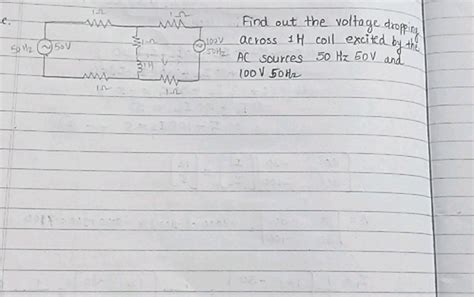 c.
1Ω 1Ω
50Hz 50V
1Ω
1H
100V
50Hz
1Ω 1Ω
Find out the voltage dropping
across 1H coil excited by the
AC sources 50 Hz 50V and
100V 50Hz